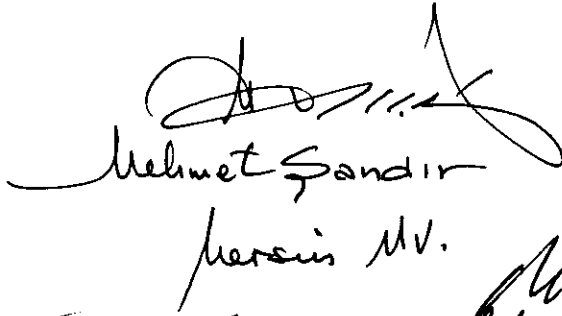 Mehmet Şandır
Mersin MV.